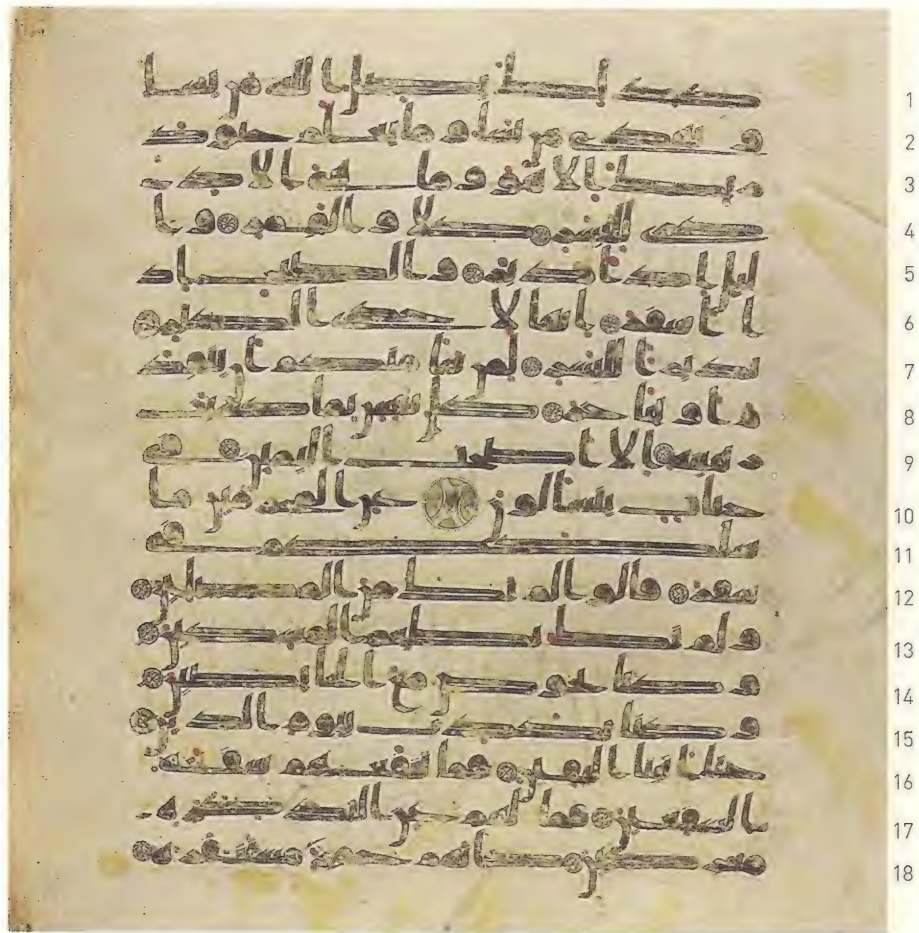 كذلك يضل الله من يشا 1
و يهدى من يشا و ما يعلم جنود 2
ربك الا هو و ما هى الا ذ 3
كرى للبشر كلا و القمر و ا 4
ليل اذ ادبر و الصبح اذ 5
ا اسفر انها لاحدى الكبر 6
نذيرا للبشر لمن شا منكم ان يتقد 7
م او يتاخر كل نفس بما كسبت 8
رهينة الا اصحب اليمين فى 9
جنت يتسالون عن المجرمين ما 10
سلككم فى 11
سقر قالوا لم نك من المصلين 12
و لم نك نطعم المسكين 13
و كنا نخوض مع الخايضين 14
و كنا نكذب بيوم الدين 15
حتى اتينا اليقين فما تنفعهم شفعة 16
الشفعين فما لهم عن التذكرة 17
معرضين كانهم حمر مستنفرة 18